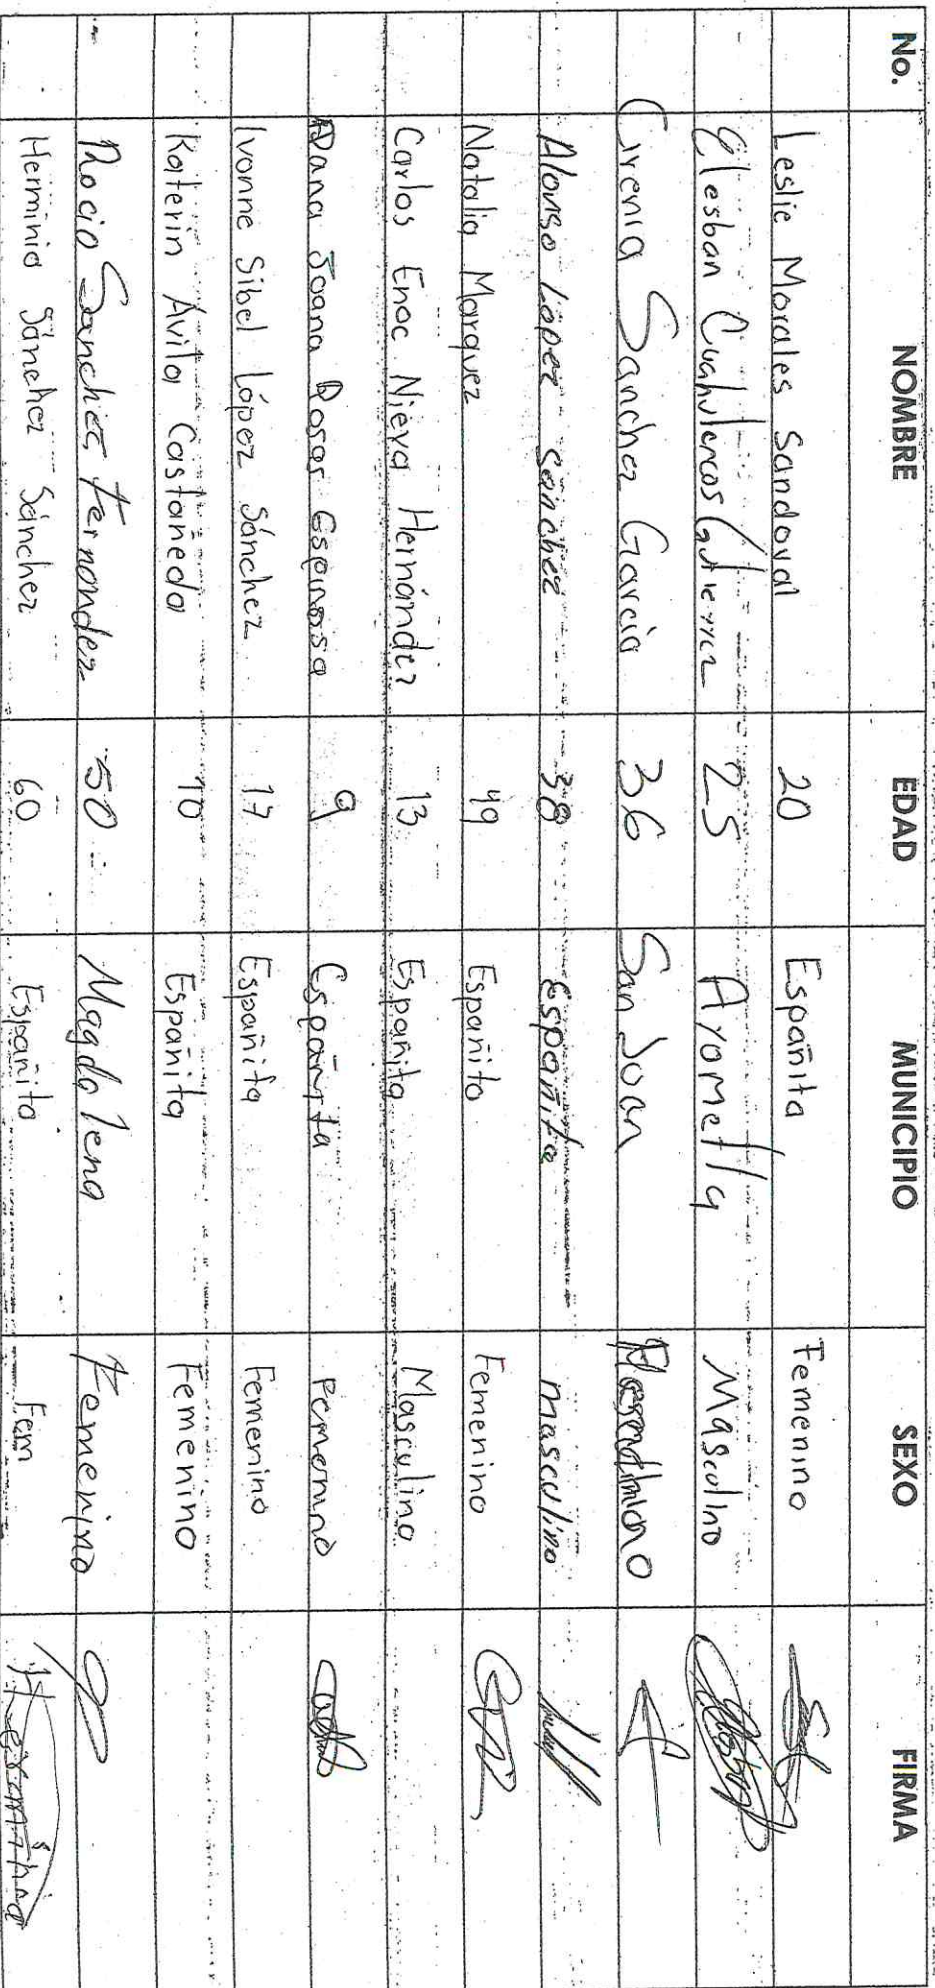 No. NOMBRE EDAD MUNICIPIO SEXO FIRMA
Leslie Morales Sandoval 20 Españita Femenino
Elesban Cuahutencos Gutierrez 25 Atometla Masculino
Cirenia Sanchez Garcia 36 San Juan
Alonso López Sánchez 38 Españita masculino
Natalia Marquez 49 Españita Femenino
Carlos Enoc Nieva Hernández 13 Españita Masculino
Dana Joana Rosas Espinosa 9 Españita Femenino
Ivonne Sibel López Sánchez 17 Españita Femenino
Katerin Ávila Castañeda 10 Españita Femenino
Rocio Sanchez Fernandez 50 Magdalena Femenino
Herminia Sánchez Sánchez 60 Españita Fem